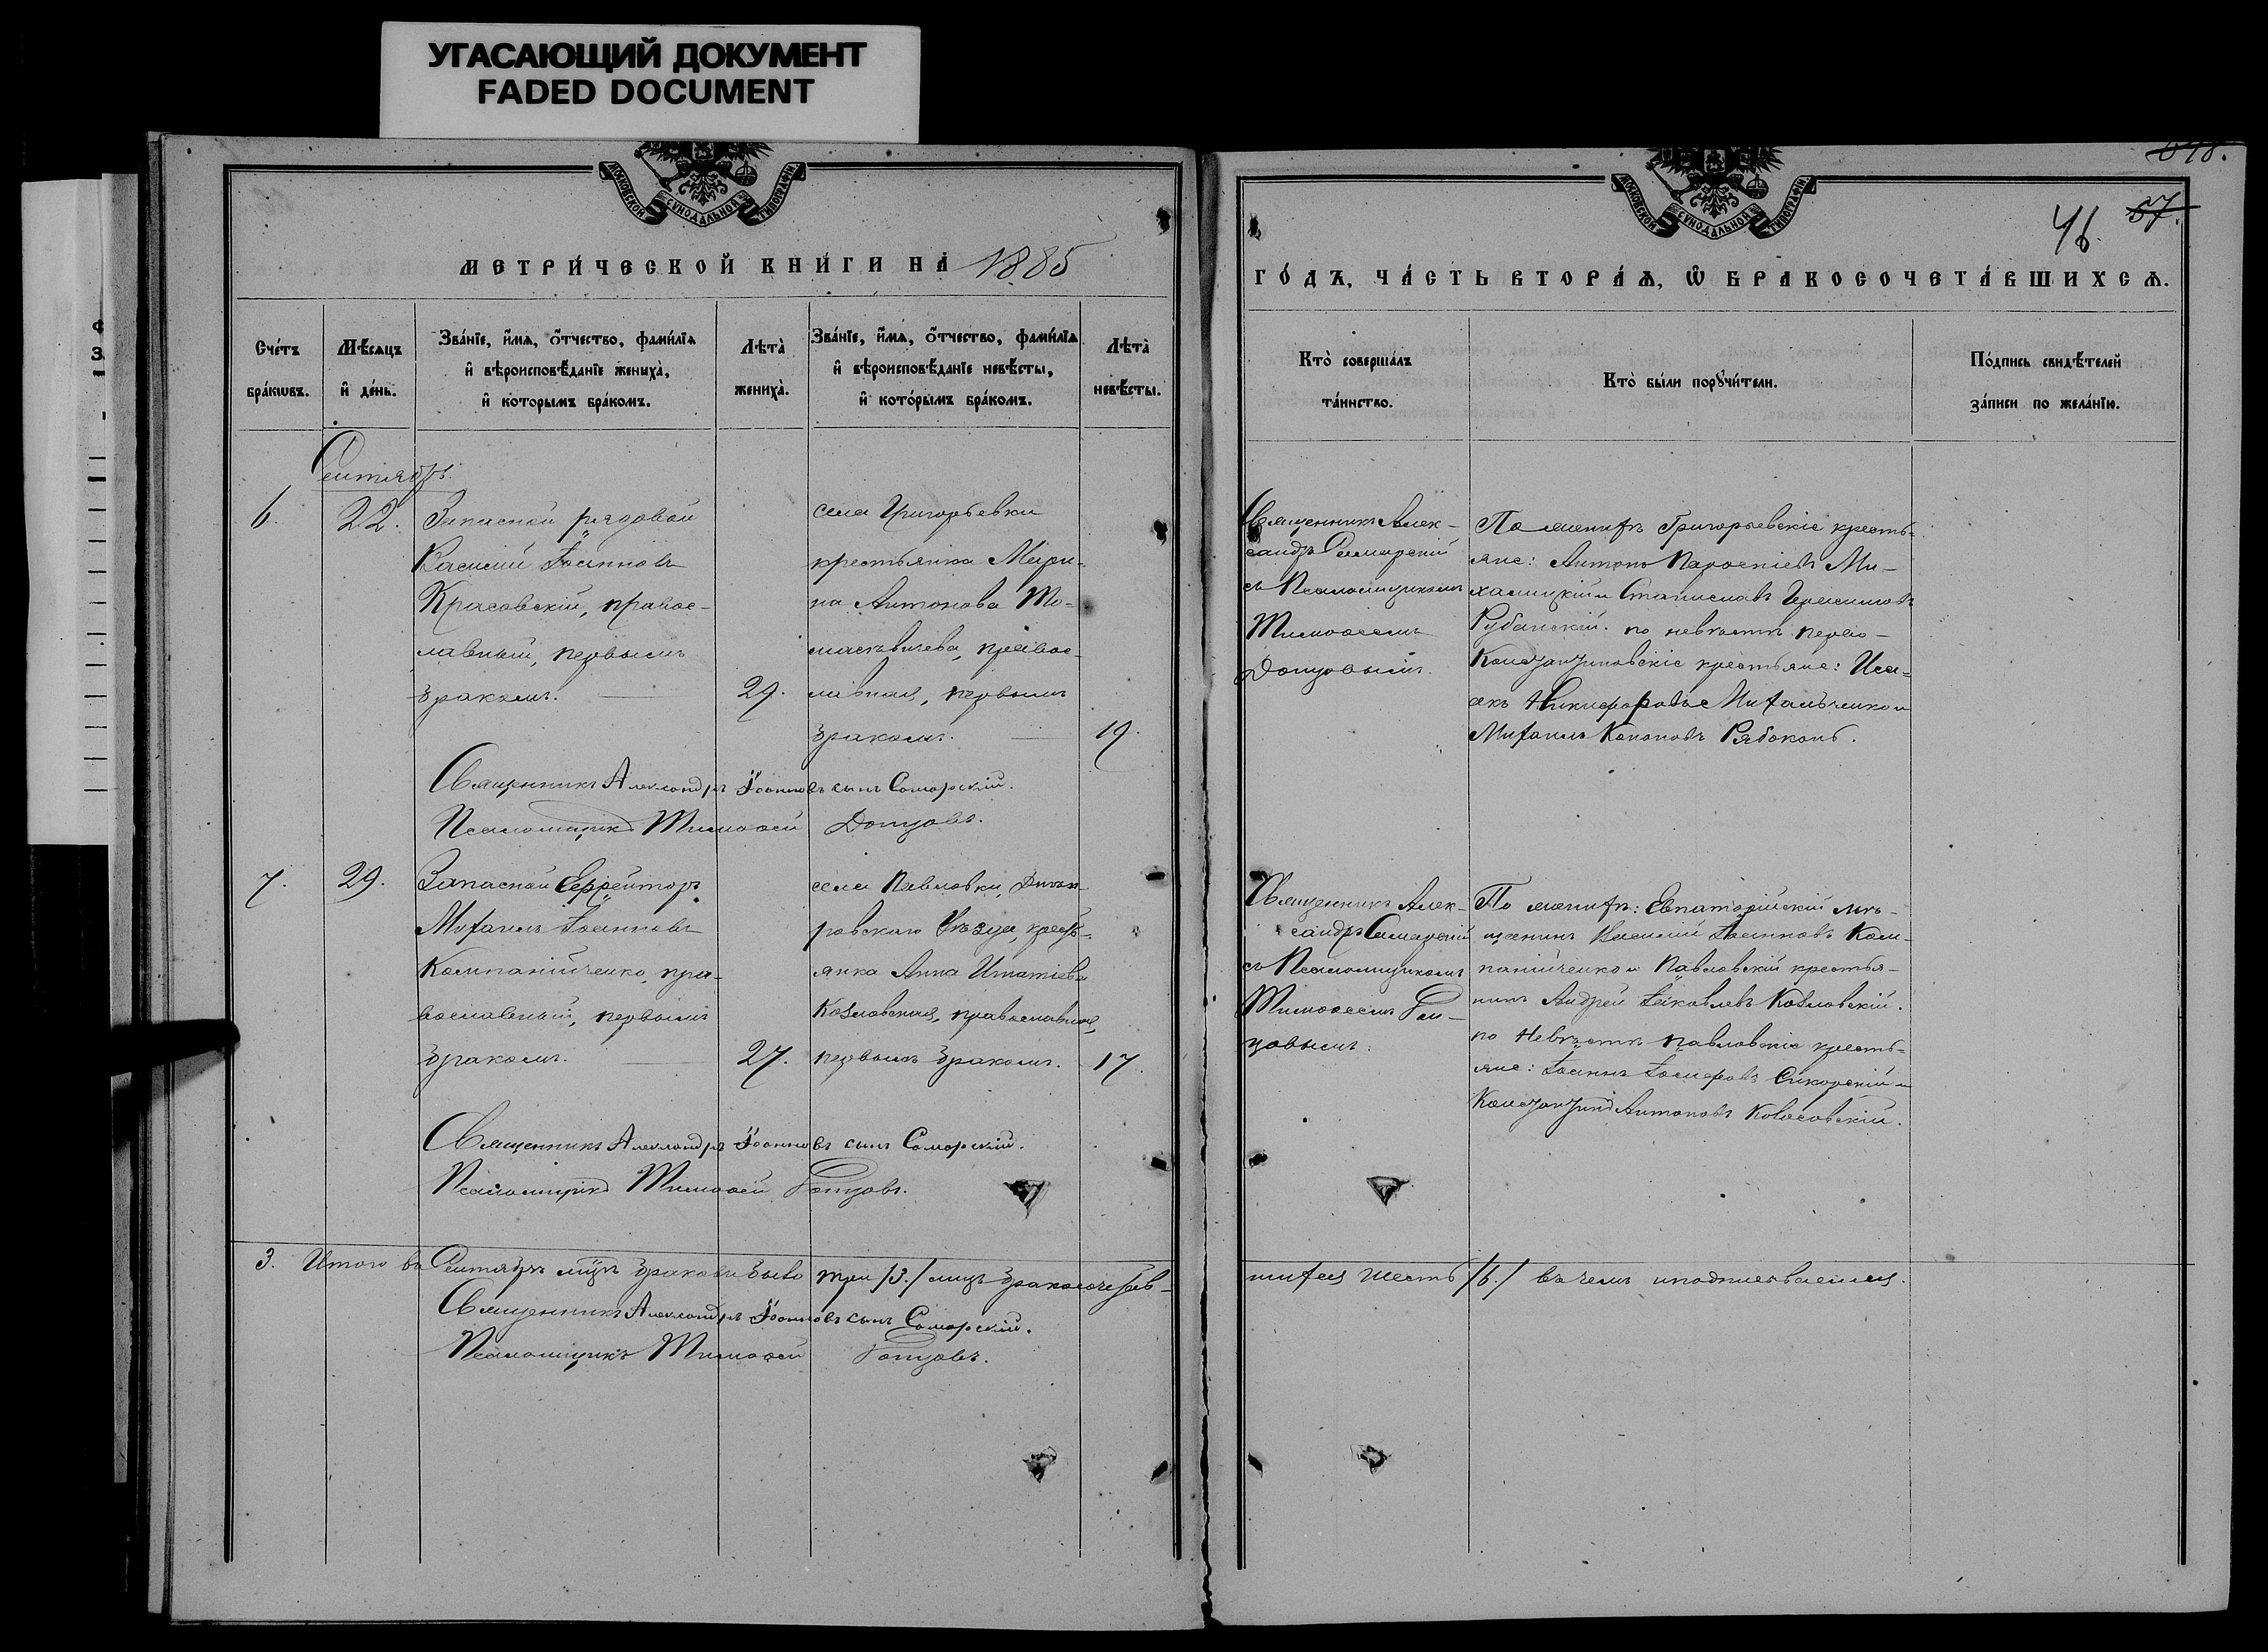 УГАСАЮЩИЙ ДОКУМЕНТ
FADED DOCUMENT
МОСКОВСКОЙ СѴНОДАЛЬНОЙ ТИПОГРАФІИ
МЕТРИ́ЧЕСКОЙ КНИ́ГИ НА̀ 1885
Сче́тъ бра́кѡвъ.
Мѣ́сѧцъ и҆ де́нь.
Зва́нїе, и҆́мѧ, ѻ҆́тчество, фами́лїѧ
и҆ вѣроисповѣ́данїе жениха̀,
и҆ кото́рымъ бра́комъ.
Лѣта̀ жениха̀.
Зва́нїе, и҆́мѧ, ѻ҆́тчество, фами́лїѧ
и҆ вѣроисповѣ́данїе невѣ́сты,
и҆ кото́рымъ бра́комъ.
Лѣта̀ невѣ́сты.
Сентябрь.
6.
22.
Запасной рядовой
Василій Іоанновъ
Красовскій, правос-
лавный, первымъ
бракомъ.
29.
села Григорьевки
крестьянка Мари-
на Антонова
правос-
лавная, первымъ
бракомъ.
19.
Священникъ Александръ Іоанновъ сынъ Самарскій.
Псаломщикъ Тимоѳей
7.
29.
Запасной Ефрейторъ
Михаилъ Іоанновъ
Компанійченко, пра-
вославный, первымъ
бракомъ.
27.
села Павловки, Днѣп-
ровскаго Уѣзда, крест-
янка Анна Игнатіева
Козловская, православная,
первымъ бракомъ.
17.
Священникъ Александръ Іоанновъ сынъ Самарскій.
Псаломщикъ Тимоѳей
3. Итого въ Сентябрѣ м҃цѣ браковъ было три /3./ лицъ бракосочетав-
Священникъ Александръ Іоанновъ сынъ Самарскій.
Псаломщикъ Тимоѳей
57.
46.
МОСКОВСКОЙ СѴНОДАЛЬНОЙ ТИПОГРАФІИ
ГО́ДЪ, ЧА́СТЬ ВТОРА́Ѧ, Ѡ҆ БРАКОСОЧЕТА́ВШИХСѦ.
Кто̀ соверша́лъ
та́инство.
Кто̀ бы́ли порꙋчи́тели.
По́дпись свидѣ́телей
за́писи по жела́нїю.
Священникъ Алек-
сандръ Самарскій
съ Псаломщикомъ
Тимоѳеемъ
По женихѣ Григорьевскіе кресть-
яне: Антонъ Парѳеніевъ Ми-
халицкій и Станиславъ Герасимовъ
Рубанскій. по невѣстѣ перво-
Константиновскіе крестьяне: Иса-
акъ Никифоровъ Михальченко и
Михаилъ Кононовъ Рябоконь.
Священникъ Алек-
сандръ Самарскій
съ Псаломщикомъ
Тимоѳеемъ
По женихѣ: Евпаторійскій мѣ-
щанинъ Василій Іоанновъ Ком-
панійченко и Павловскій крестья-
нинъ Андрей Іаковлевъ Козловскій.
по Невѣстѣ Павловскіе кресть-
яне: Іоаннъ Іосифовъ Сикорскій и
Константинъ Антоновъ
шихся шесть /6./ въ чемъ и подписываемся.